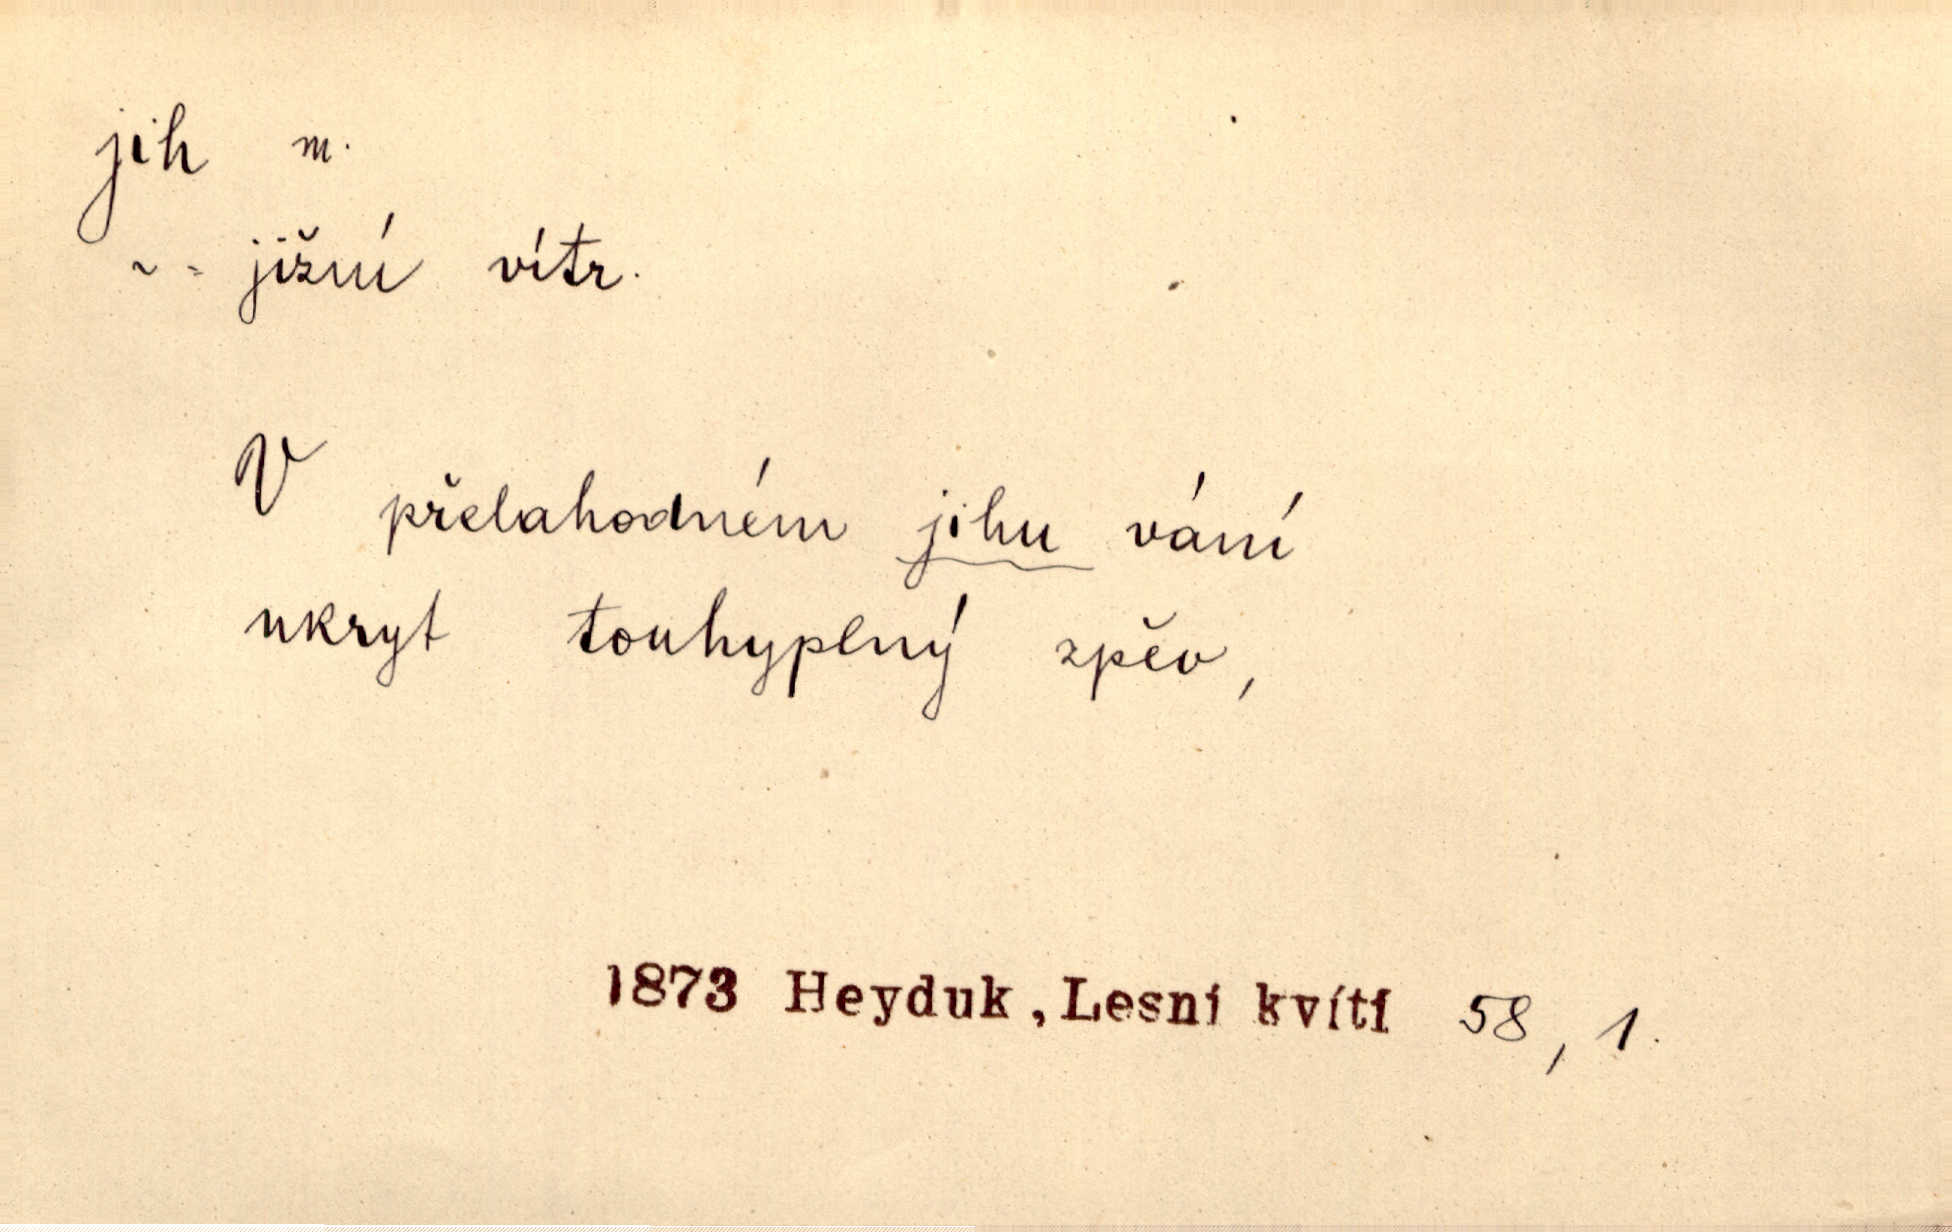 jih m.
~ = jižní vítr.
V přelahodném jihu vání
ukryt touhyplný zpěv,
1873 Heyduk, Lesní kvítí 58, 1.